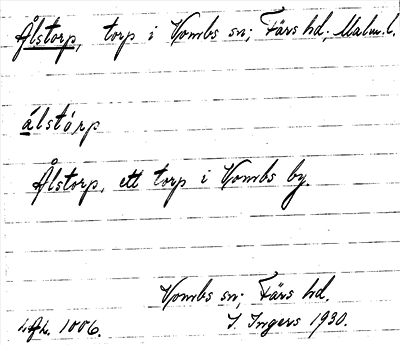 Ålstorp, torp i Vombs sn; Färs hd; Malm. l.
álstórp
Ålstorp, ett torp i Vombs by.
Vombs sn; Färs hd.
1006. I. Ingers 1930.